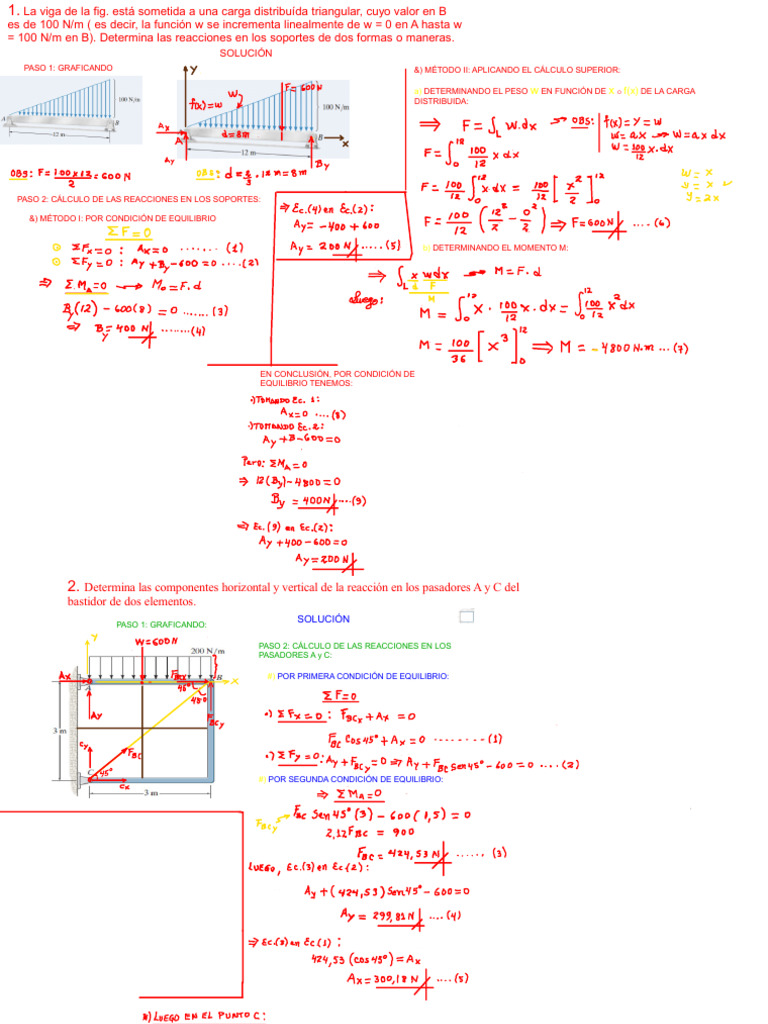 1. La viga de la fig. está sometida a una carga distribuída triangular, cuyo valor en B
es de 100 N/m ( es decir, la función w se incrementa linealmente de w = 0 en A hasta w
= 100 N/m en B). Determina las reacciones en los soportes de dos formas o maneras.
SOLUCIÓN
PASO 1: GRAFICANDO
100 N/m
A
B
12 m
OBS: F = 100 x 12 / 2 = 600 N
y
W
F = 600 N
f(x) = w
100 N/m
Ax
A
d = 8m
B
x
12 m
Ay
By
OBS: d = 2/3 . 12 m = 8m
PASO 2: CÁLCULO DE LAS REACCIONES EN LOS SOPORTES:
&) MÉTODO I: POR CONDICIÓN DE EQUILIBRIO
ΣF = 0
ΣFx = 0 : Ax = 0 ....... (1)
ΣFy = 0 : Ay + By - 600 = 0 .... (2)
⇒ ΣMA = 0 → Mo = F. d
By (12) - 600 (8) = 0 ...... (3)
⇒ By = 400 N ........ (4)
⇒ Ec. (4) en Ec. (2) :
Ay = - 400 + 600
Ay = 200 N ..... (5)
&) MÉTODO II: APLICANDO EL CÁLCULO SUPERIOR:
a) DETERMINANDO EL PESO W EN FUNCIÓN DE X o f(x) DE LA CARGA
DISTRIBUIDA:
⇒ F = ∫L W.dx → OBS: f(x) = y = w
w = ax → w = a x dx
w = 100/12 x. dx
F = ∫0^12 100/12 x dx
F = 100/12 ∫0^12 x dx = 100/12 [x²/2]0^12
F = 100/12 (12²/2 - 0²/2) ⇒ F = 600 N .... (6)
w = x
y = x
y = 2x
b) DETERMINANDO EL MOMENTO M:
⇒ ∫L x w dx → M = F. d
d F
M
Luego:
M = ∫0^12 x . 100/12 x. dx = ∫0^12 100/12 x² dx
M = 100/36 [x³]0^12 ⇒ M = - 4800 N.m ... (7)
EN CONCLUSIÓN, POR CONDICIÓN DE
EQUILIBRIO TENEMOS:
.) TOMANDO Ec. 1 :
Ax = 0 .... (8)
.) TOMANDO Ec. 2 :
Ay + B - 600 = 0
Pero: ΣMA = 0
⇒ 12 (By) - 4800 = 0
By = 400 N .... (9)
⇒ Ec. (9) en Ec. (2) :
Ay + 400 - 600 = 0
Ay = 200 N
2. Determina las componentes horizontal y vertical de la reacción en los pasadores A y C del
bastidor de dos elementos.
SOLUCIÓN
PASO 1: GRAFICANDO:
y
W = 600 N
200 N/m
Ax
A
FBCx
B
x
45°
45°
Ay
FBCy
3 m
Cy
FBC
C
45°
Cx
3 m
PASO 2: CÁLCULO DE LAS REACCIONES EN LOS
PASADORES A y C:
#) POR PRIMERA CONDICIÓN DE EQUILIBRIO:
ΣF = 0
.) ΣFx = 0 : FBCx + Ax = 0
FBC Cos 45° + Ax = 0 -------- (1)
.) ΣFy = 0 : Ay + FBCy = 0 ⇒ Ay + FBC Sen 45° - 600 = 0 .... (2)
#) POR SEGUNDA CONDICIÓN DE EQUILIBRIO:
⇒ ΣMA = 0
FBCy
FBC Sen 45° (3) - 600 (1,5) = 0
2,12 FBC = 900
FBC = 424,53 N ...... (3)
LUEGO, Ec. (3) en Ec (2) :
Ay + (424,53) Sen 45° - 600 = 0
Ay = 299,81 N .... (4)
⇒ Ec. (3) en Ec (1) :
424,53 (cos 45°) = Ax
Ax = 300,18 N .... (5)
#) LUEGO EN EL PUNTO C :